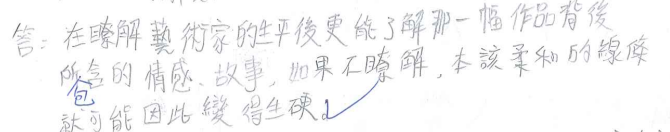 答：在瞭解藝術家的生平後更能了解那一幅作品背後
所包含的情感、故事，如果不瞭解，本該柔和的線條
就可能因此變得生硬。